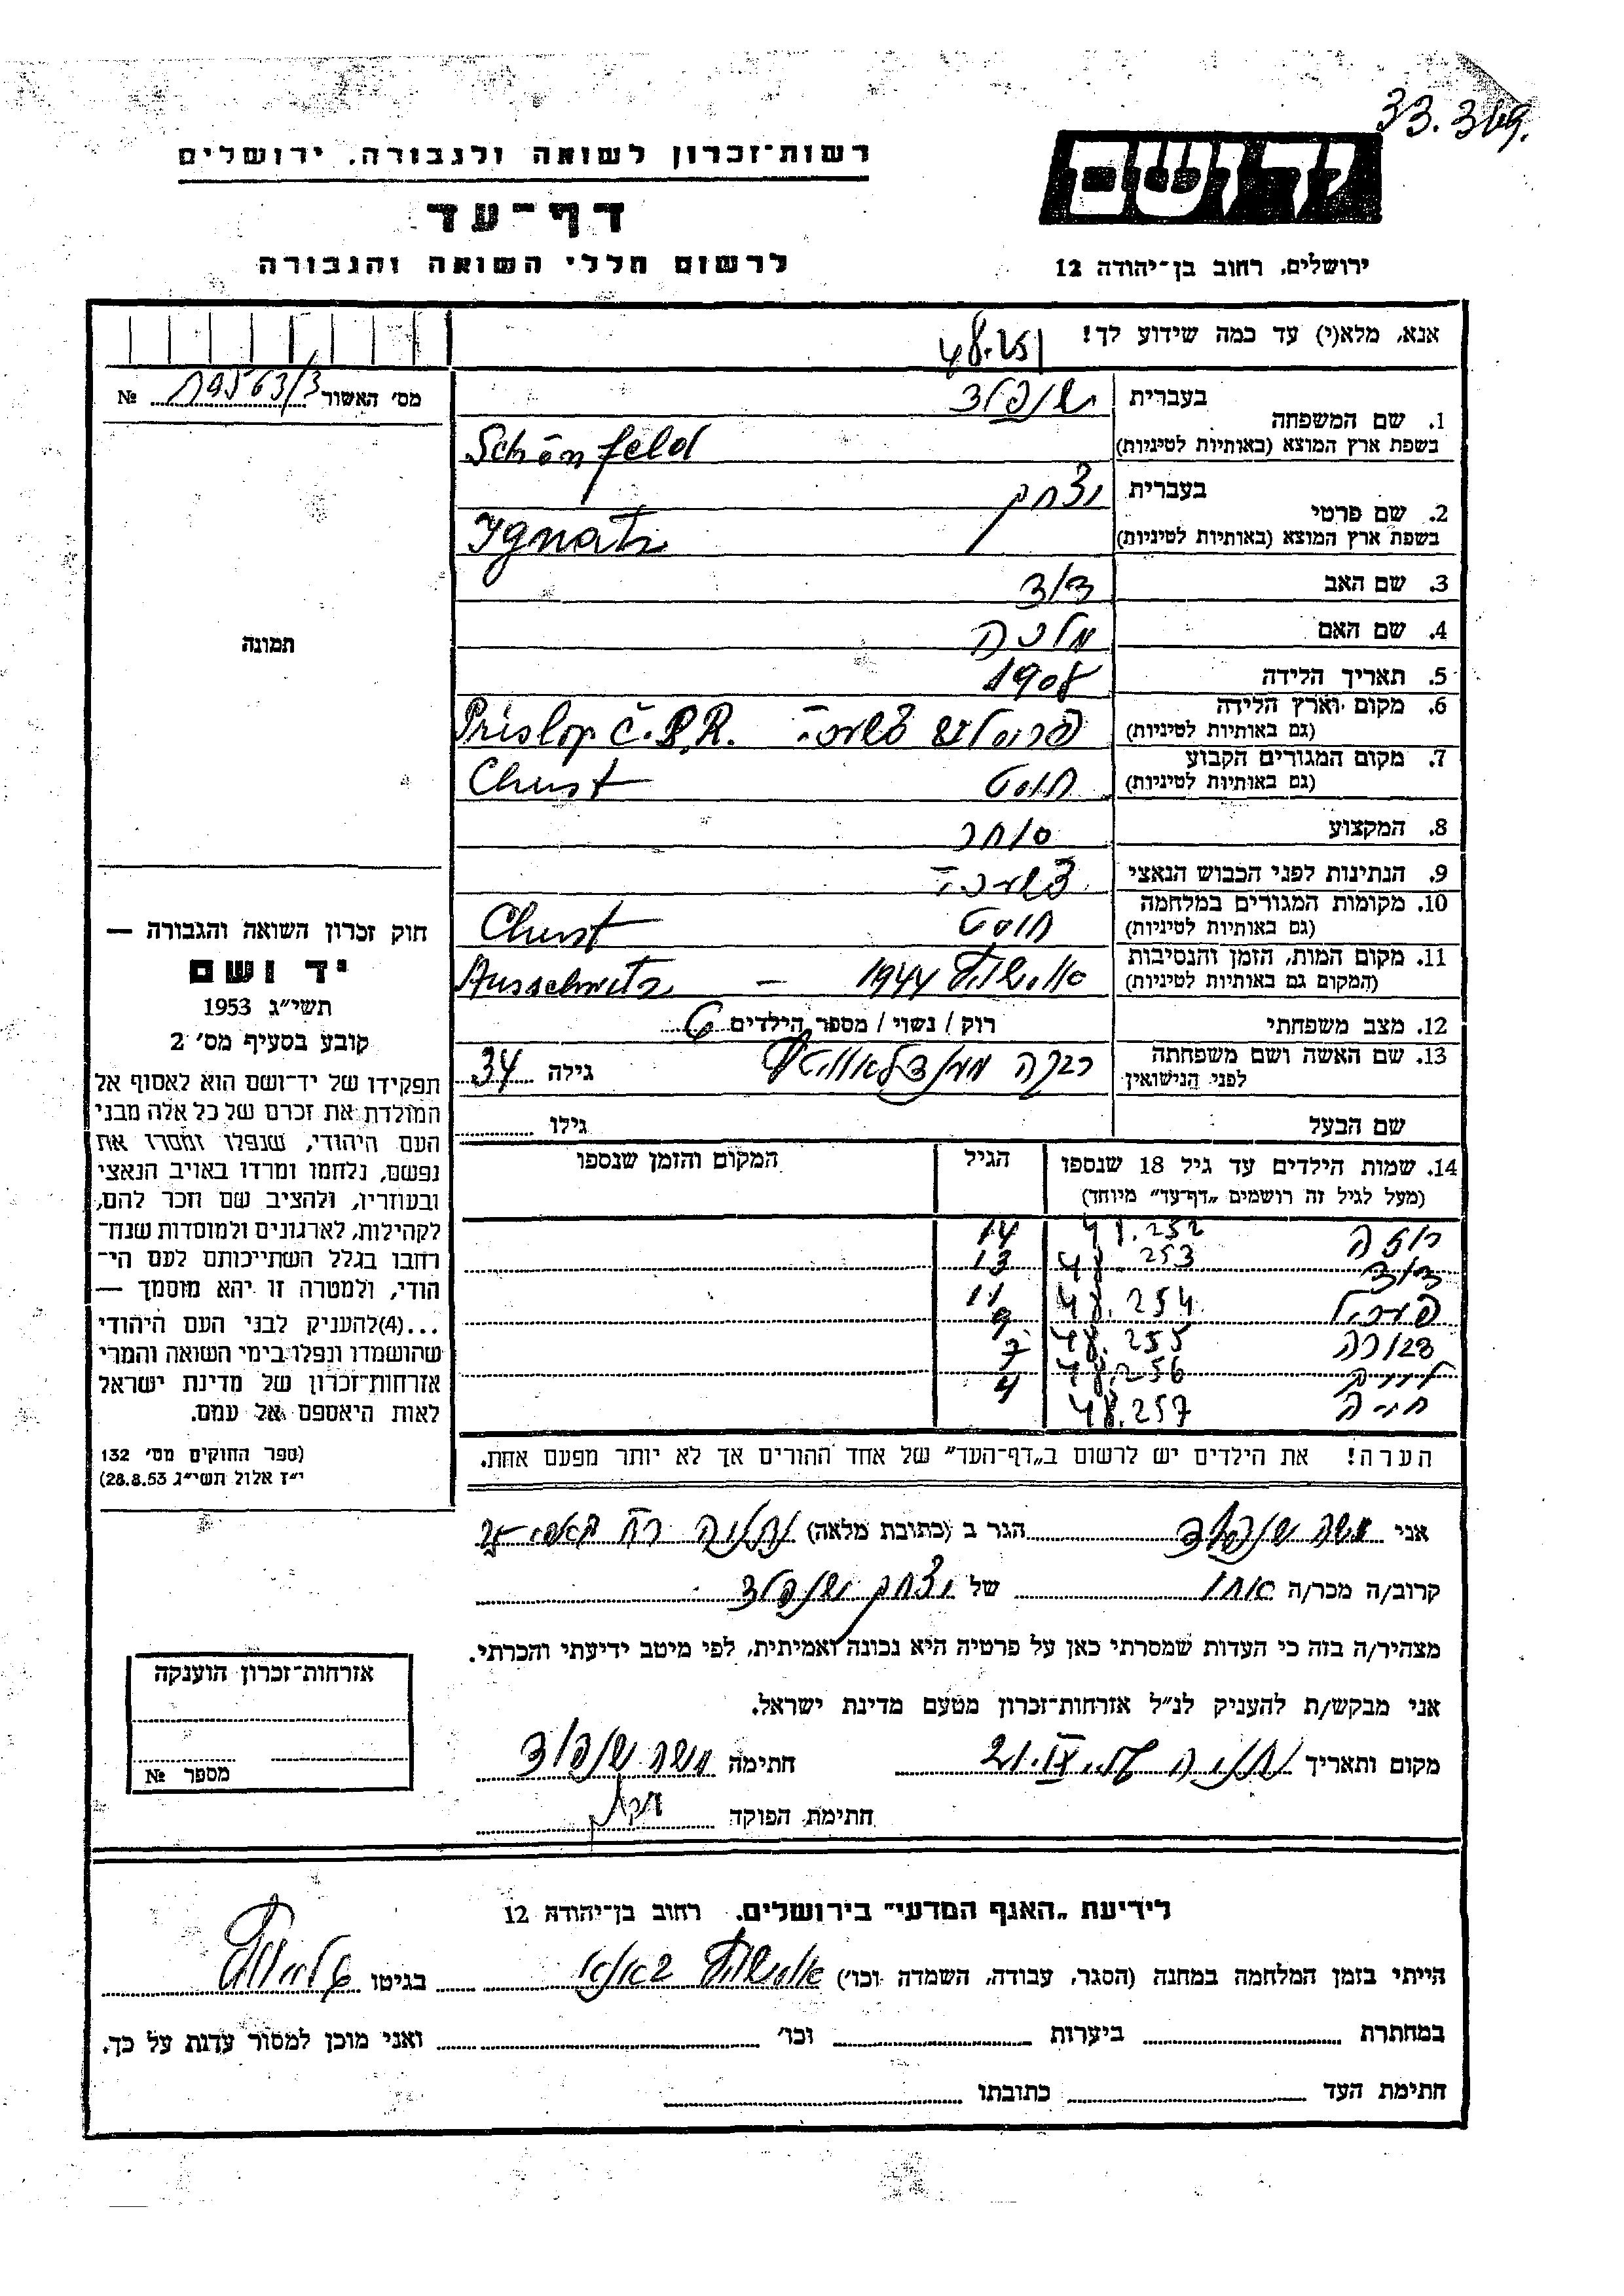 33.349.
ידושם
רשות־זכרון לשואה ולגבורה, ירושלים
דף־עד
לרשום חללי השואה והגבורה
ירושלים, רחוב בן־יהודה 12
אנא, מלא(י) עד כמה שידוע לך!
48.251
מס׳ האשור 19563/3 №
1. שם המשפחה
בעברית שנפלד
בשפת ארץ המוצא (באותיות לטיניות) Schönfeld
2. שם פרטי
בעברית יצחק
בשפת ארץ המוצא (באותיות לטיניות) Ignatz
3. שם האב דוד
4. שם האם מלכה
5. תאריך הלידה 1908
6. מקום וארץ הלידה
(גם באותיות לטיניות) Prislop Č.S.R.
7. מקום המגורים הקבוע
(גם באותיות לטיניות) חוסט Chust
8. המקצוע סוחר
9. הנתינות לפני הכבוש הנאצי
10. מקומות המגורים במלחמה
(גם באותיות לטיניות) חוסט Chust
11. מקום המות, הזמן והנסיבות
(המקום גם באותיות לטיניות) אושוויץ 1944 — Ausschwitz
12. מצב משפחתי רוק / נשוי / מספר הילדים 6
13. שם האשה ושם משפחתה
לפני הנישואין רבקה גילה 34
שם הבעל גילו
14. שמות הילדים עד גיל 18 שנספו
(מעל לגיל זה רושמים „דף־עד״ מיוחד)
הגיל
המקום והזמן שנספו
רוזה 48.252 14
דוד 48.253 13
48.254 11
דבורה 48.255 9
48.256 7
חיה 48.257 4
הערה! את הילדים יש לרשום ב„דף־העד״ של אחד ההורים אך לא יותר מפעם אחת.
תמונה
חוק זכרון השואה והגבורה —
יד ושם
תשי״ג 1953
קובע בסעיף מס׳ 2
תפקידו של יד־ושם הוא לאסוף אל
המולדת את זכרם של כל אלה מבני
העם היהודי, שנפלו ומסרו את
נפשם, נלחמו ומרדו באויב הנאצי
ובעוזריו, ולהציב שם וזכר להם,
לקהילות, לארגונים ולמוסדות שנח־
רחבו בגלל השתייכותם לעם הי־
הודי, ולמטרה זו יהא מוסמך —
...(4)להעניק לבני העם היהודי
שהושמדו ונפלו בימי השואה והמרי
אזרחות־זכרון של מדינת ישראל
לאות היאספם אל עמם.
(ספר החוקים מס׳ 132
י״ז אלול תשי״ג 28.8.53)
אני משה שנפלד הגר ב (כתובת מלאה) נתניה רח
קרוב/ה מכר/ה אחי של יצחק שנפלד
מצהיר/ה בזה כי העדות שמסרתי כאן על פרטיה היא נכונה ואמיתית, לפי מיטב ידיעתי והכרתי.
אני מבקש/ת להעניק לנ״ל אזרחות־זכרון מטעם מדינת ישראל.
מקום ותאריך נתניה חתימה משה שנפלד
חתימת הפוקד
אזרחות־זכרון הוענקה
מספר №
לידיעת „האגף המדעי״ בירושלים, רחוב בן־יהודה 12
הייתי בזמן המלחמה במחנה (הסגר, עבודה, השמדה וכו׳) אושוויץ בגיטו
במחתרת ביערות וכו׳ ואני מוכן למסור עדות על כך.
חתימת העד כתובתו